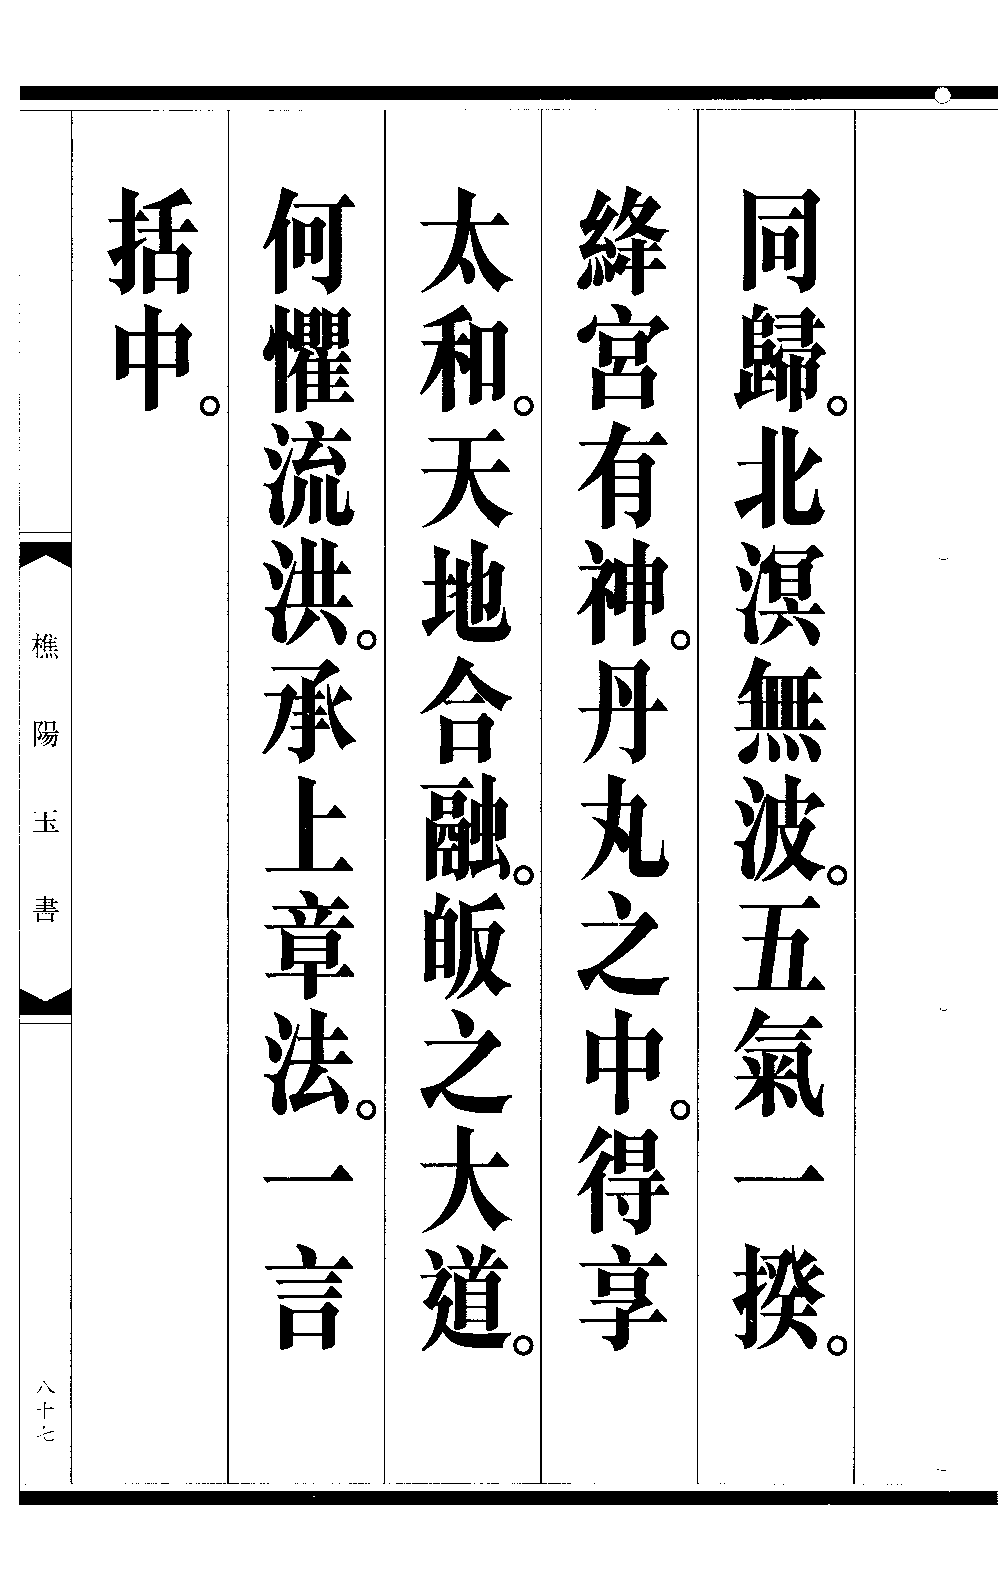 同歸。北溟無波。五氣一揆。
絳宮有神。丹丸之中。得享
太和。天地合融。皈之大道。
何懼流洪。承上章法。一言
括中。
樵陽玉書
八十七